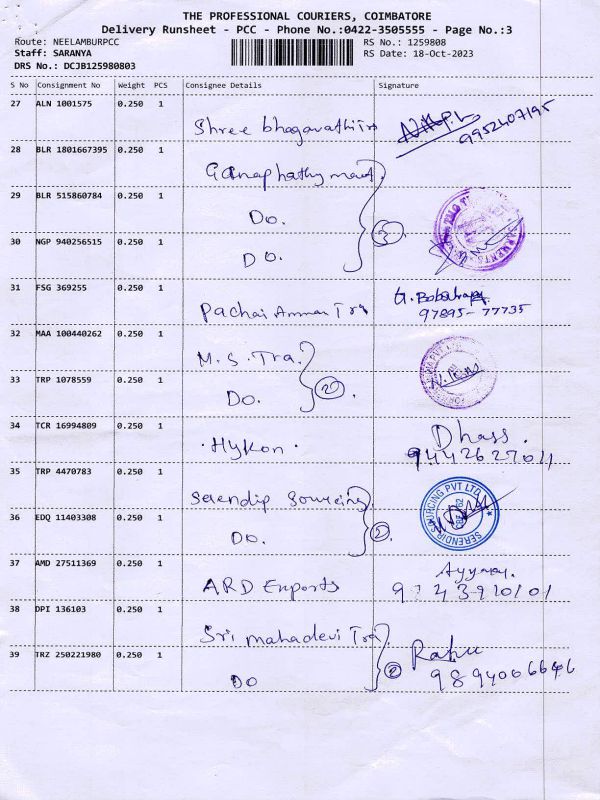 THE PROFESSIONAL COURIERS, COIMBATORE
Delivery Runsheet - PCC - Phone No.:0422-3505555 - Page No.:3
Route: NEELAMBURPCC RS No.: 1259808
Staff: SARANYA RS Date: 18-Oct-2023
DRS No.: DCJB125980803
S No Consignment No Weight PCS Consignee Details Signature
27 ALN 1001575 0.250 1
Shree bhagavathi Trs 9952407195
28 BLR 1801667395 0.250 1
Ganaphathy
29 BLR 515860784 0.250 1
Do.
30 NGP 940256515 0.250 1 3
Do.
31 FSG 369255 0.250 1
Pachai Amman Tra G. 97895-77735
32 MAA 100440262 0.250 1
M.S. Tra.
33 TRP 1078559 0.250 1 2
Do.
34 TCR 16994809 0.250 1 Dhass.
. Hykon . 9442627011
35 TRP 4470783 0.250 1
Serendip Sourcing SERENDIP SOURCING PVT LTD
36 EDQ 11403308 0.250 1 2
Do.
37 AMD 27511369 0.250 1
ARD Exports
38 DPI 136103 0.250 1
Sri mahadevi Tra
39 TRZ 250221980 0.250 1 2 9894006646
DO